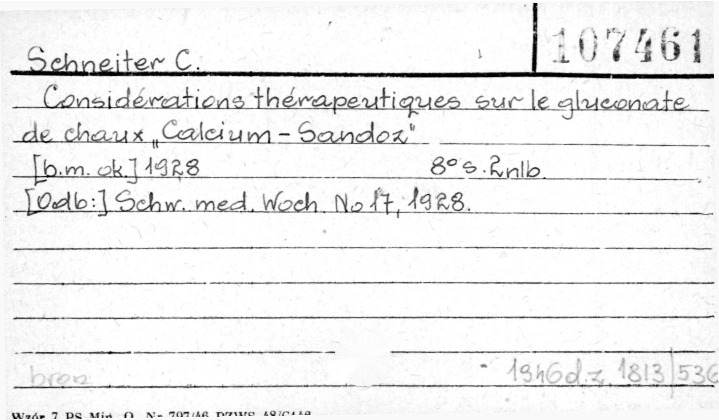 107461
Schneiter C.
Considérations thérapeutiques sur le gluconate
de chaux „Calcium-Sandoz"
[b.m. ok.] 1928 8° s. 2nlb.
[Odb:] Schw. med. Woch. No 17, 1928.
1946 d.z. 1813/536
Wzór 7 PS Min. O. Nr 797/46